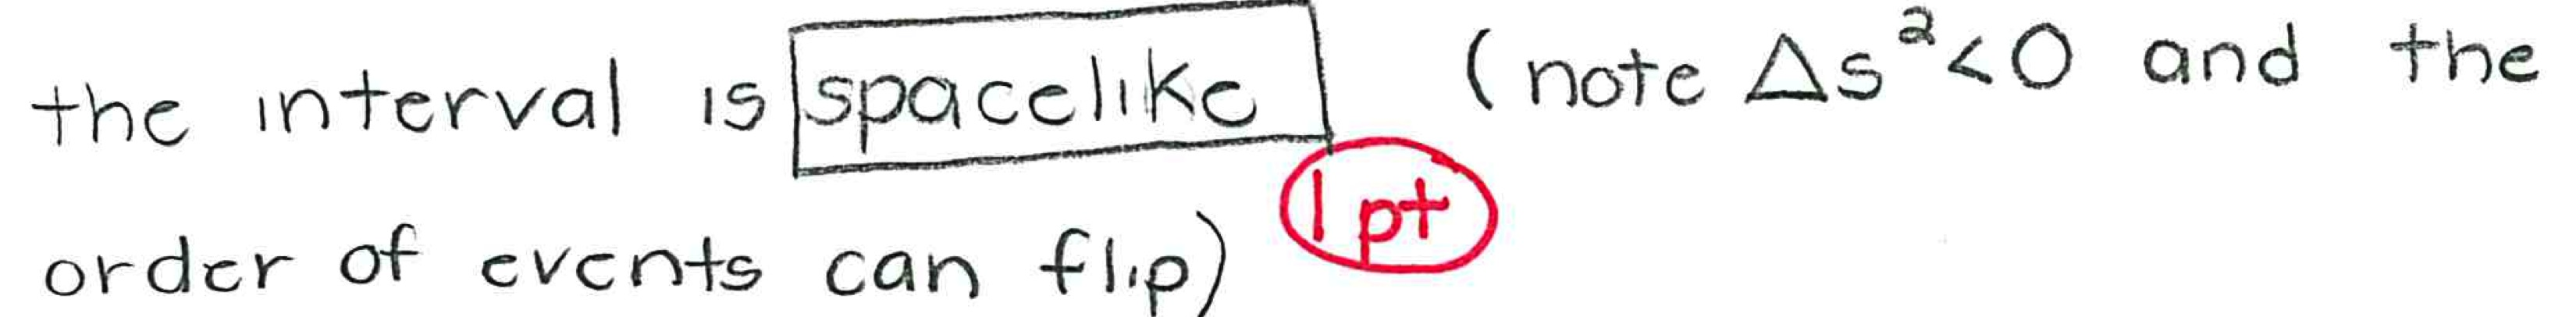 the interval is spacelike (note Δs²<0 and the
1 pt
order of events can flip)